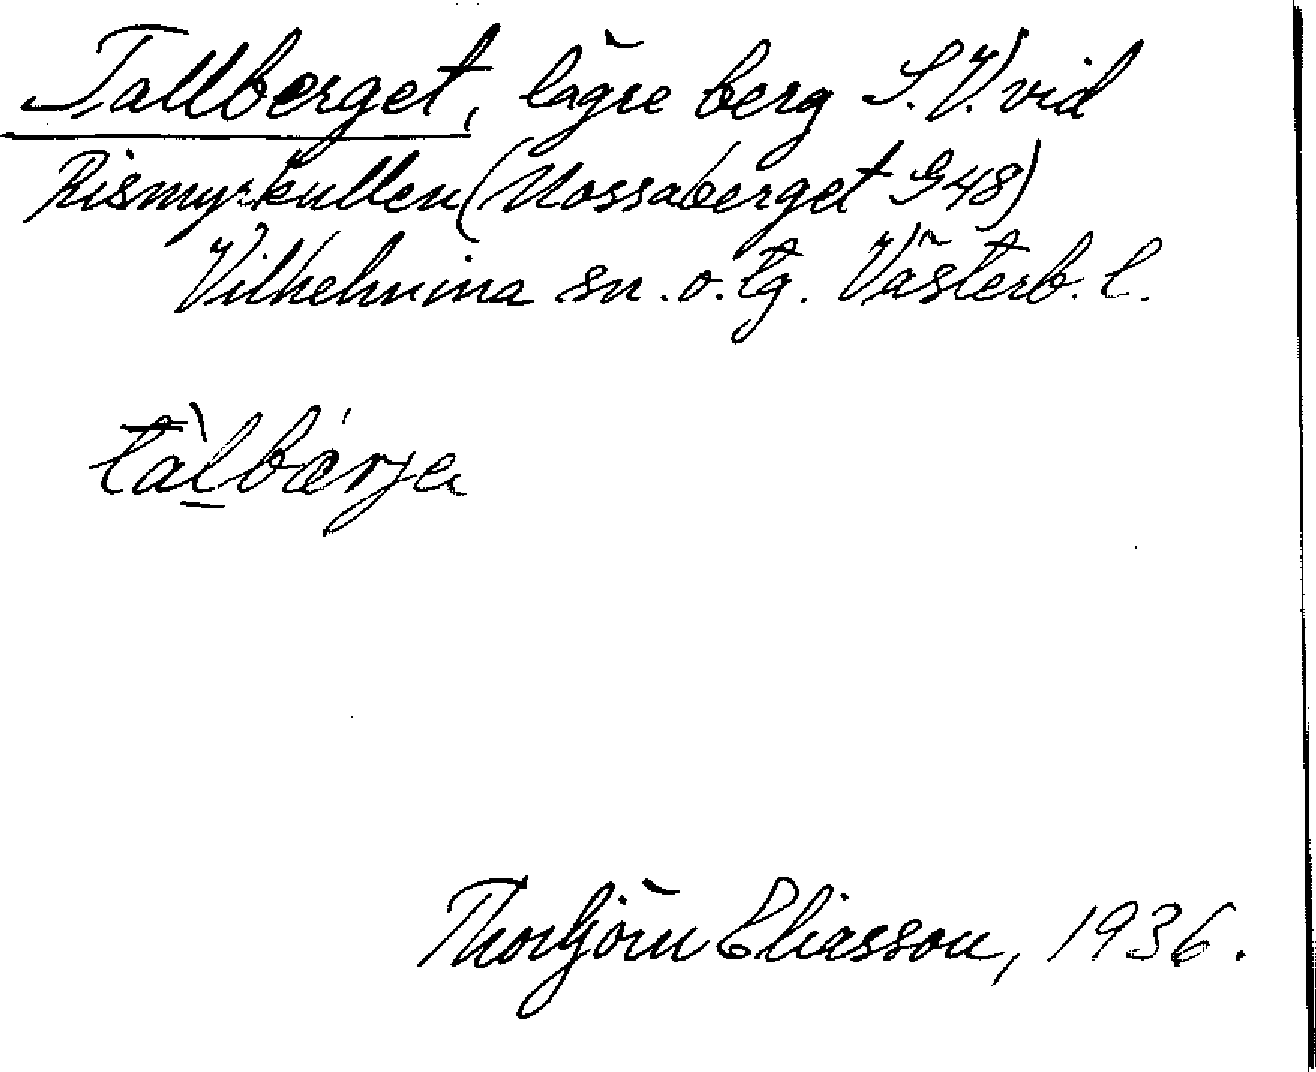 Tallberget, lägre berg S.V. vid
Rismyrkullen (Mossaberget G48)
Vilhelmina sn. o. tg. Västerb. l.
tàlbærja
Thorbjörn Eliasson, 1936.